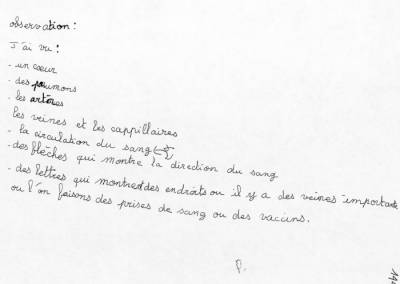 observation:
J'ai vu:
- un cœur
- des poumons
- les artères
les veines et les cappillaires
- la circulation du sang
- des flèches qui montre la direction du sang
- des lettres qui montrent des endroits ou il y a des veines importante
ou l'on faisons des prises de sang ou des vaccins.
P.